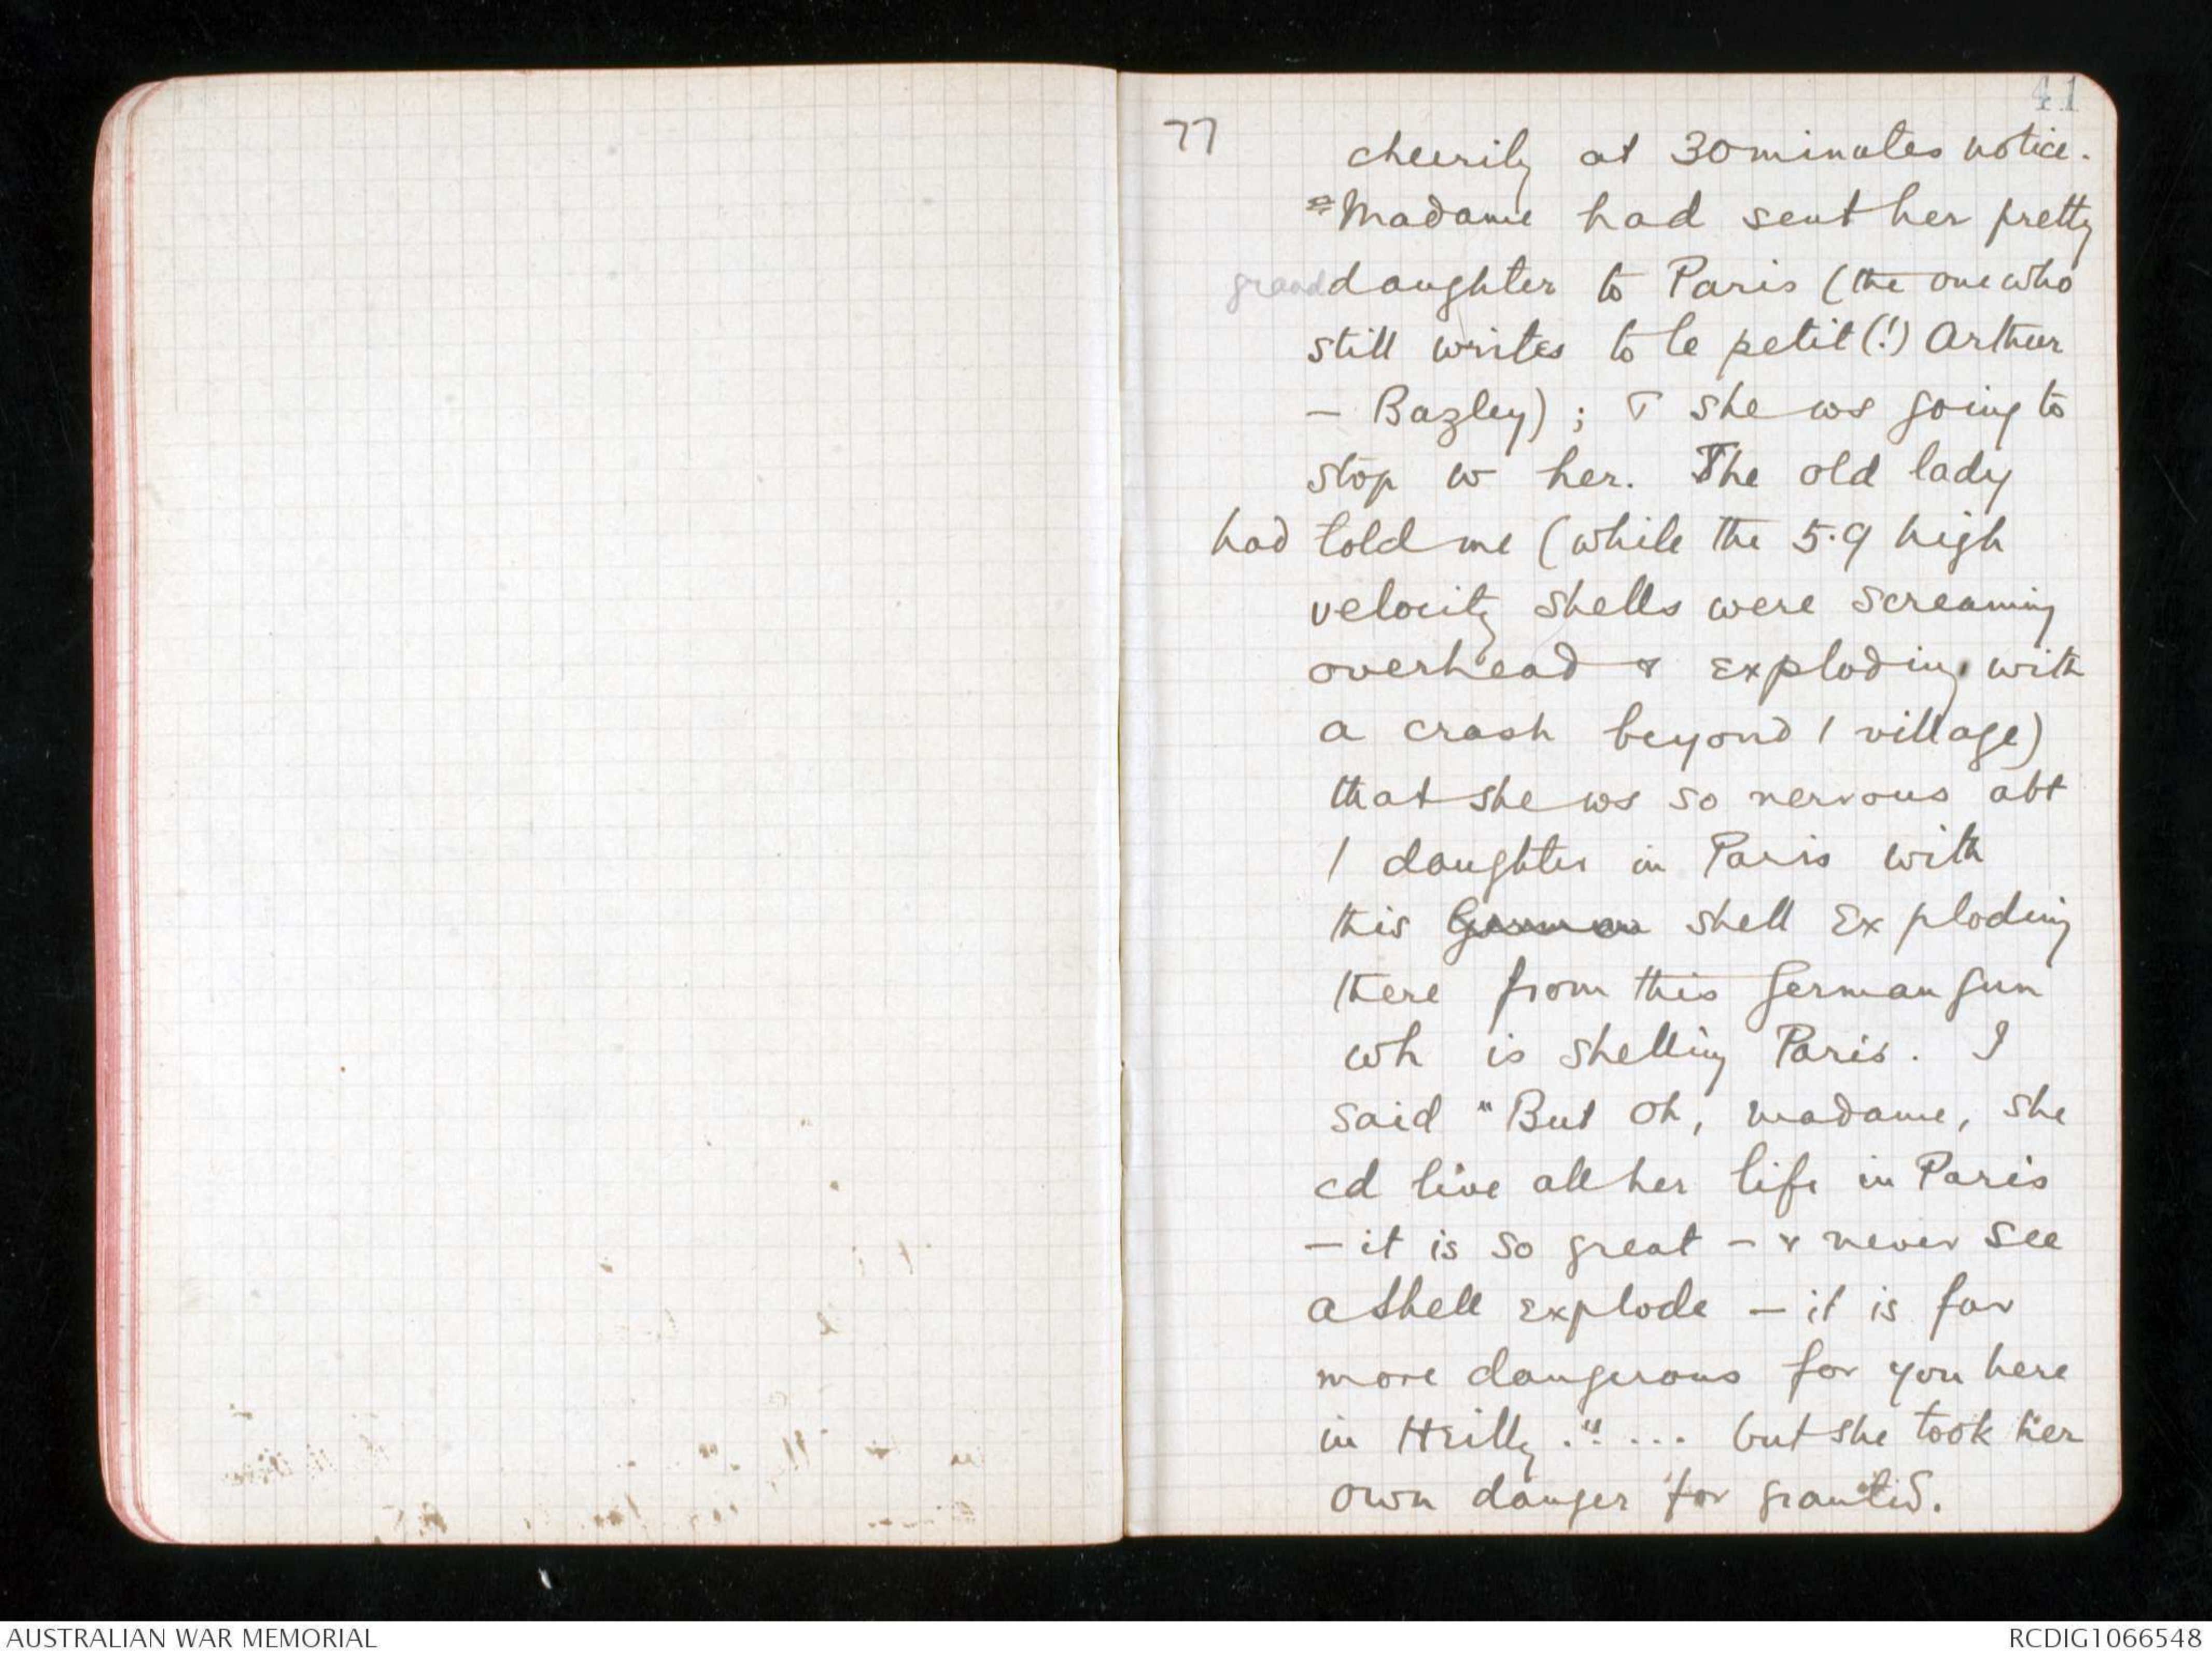 41
77
cheerily at 30 minutes notice.
= Madame had sent her pretty
granddaughter to Paris (the one who
still writes to le petit (!) Arthur
— Bazley) ; T she ws going to
stop w her. The old lady
had told me (while the 5.9 high
velocity shells were screaming
overhead & exploding with
a crash beyond / village)
that she ws so nervous abt
/ daughter in Paris with
this German shell exploding
there from this German gun
wh is shelling Paris. I
said "But oh, madame, she
cd live all her life in Paris
— it is so great — & never see
a shell explode — it is far
more dangerous for you here
in Heilly." ... but she took her
own danger for granted.
AUSTRALIAN WAR MEMORIAL
RCDIG1066548